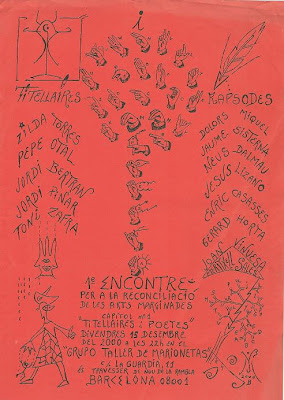 i
TITELLAIRES
RAPSODES
ILDA TORRES
PEPE OTAL
JORDI BERTRAN
JORDI PIÑAR
TONI ZAFRA
DOLORS MIQUEL
JAUME SISTERNA
NEUS DALMAU
JESUS LIZANO
ENRIC CASASSES
GERARD HORTA
JOAN VINUESA
1ER ENCONTRE
PER A LA RECONCILIACIO
DE LES ARTS MARGINADES
CAPITOL Nº1
"TITELLAIRES i POETES"
DIVENDRES 15 DESEMBRE
DEL 2000 A LES 22h EN EL
"GRUPO TALLER DE MARIONETAS"
C/ LA GUARDIA, 11
EL TRAVESSER DE NOU DE LA RAMBLA
BARCELONA 08001